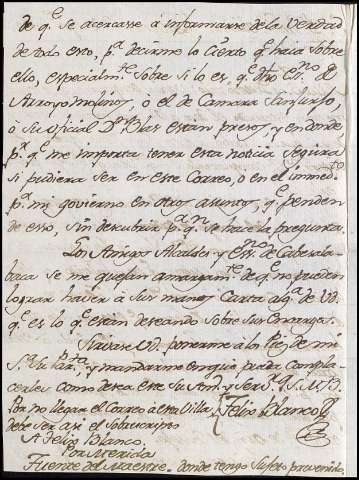 de q.e se acercasse à informarse de la verdad
de todo esto, p.a decirme lo cierto q.e havia sobre
ello, especialm.te sobre si lo es, q.e dho Es.no D.
Arroyomolinos, ò el de Camara
ò su oficial D.n Blas estan presos, y en donde,
p.r q.e me importa tener esta noticia segura
si pudiera ser en este Correo, o en el inmed.to
p.a mi govierno en otros asuntos, q.e penden
de eso, sin descubrir p.a q.n se hace la pregunta.
Los Amigos Alcaldes y Es.no de Cabezala
baca se me quejan amargam.te de q.e no pueden
lograr haver à sus manos Carta alg.a de Vd.
q.e es lo q.e estan deseando sobre sus encargos.
Sirvase Vd. ponerme à los Pies de mi
S.a y mandarme en q.e pueda compla
cerles como desea este su Am.o y Serv.or
Felix Blanco
Por no llegar el Correo à esta Villa,
debe ser asi el sobreescripto
A Felix Blanco.
Por Merida
Fuente del Maestre. donde tengo sujeto prevenido